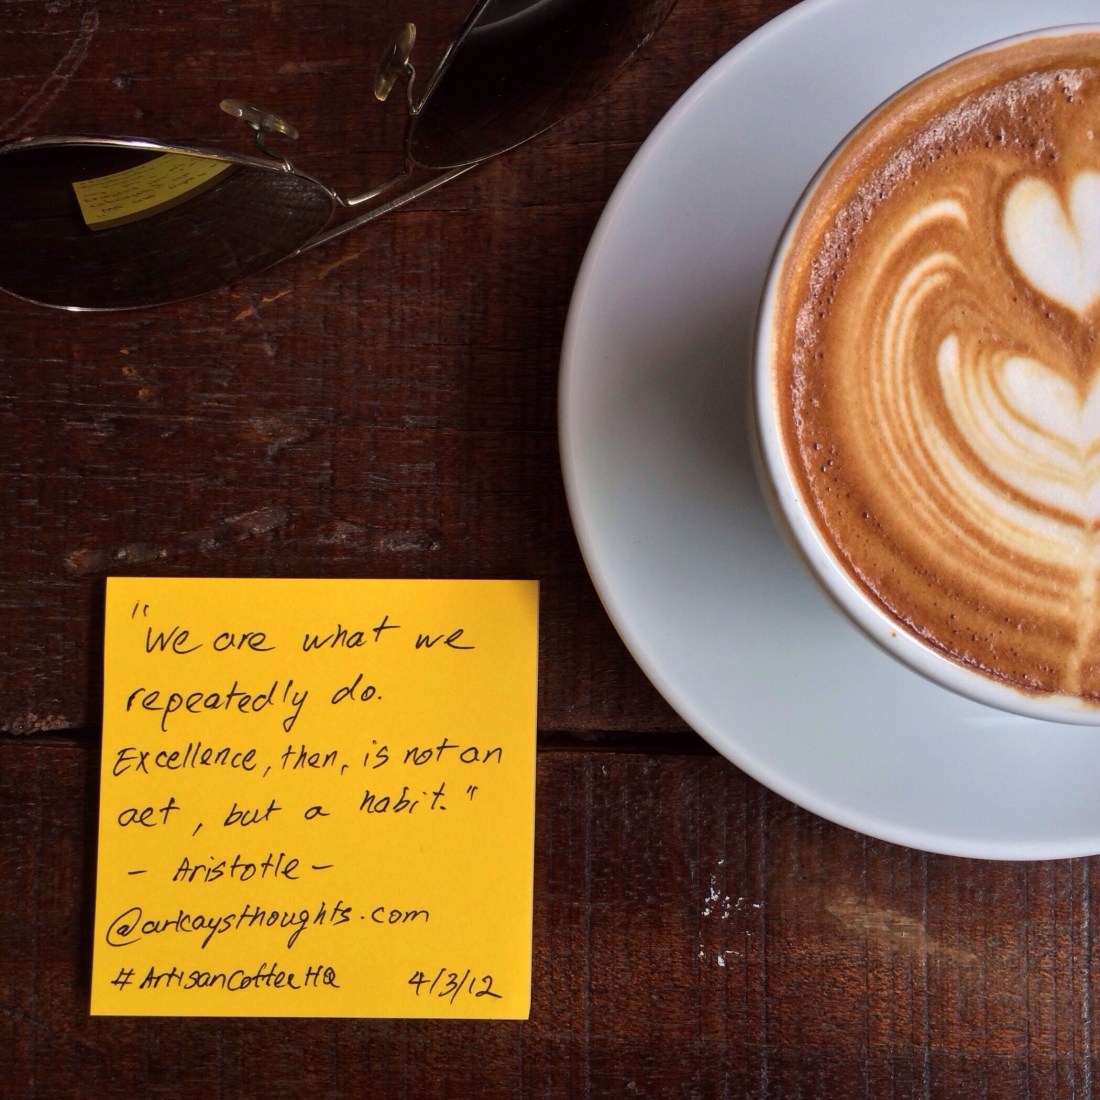 "We are what we
repeatedly do.
Excellence, then, is not an
act, but a habit."
- Aristotle -
@arkaysthoughts.com
#ArtisanCoffeeHQ 4/3/12